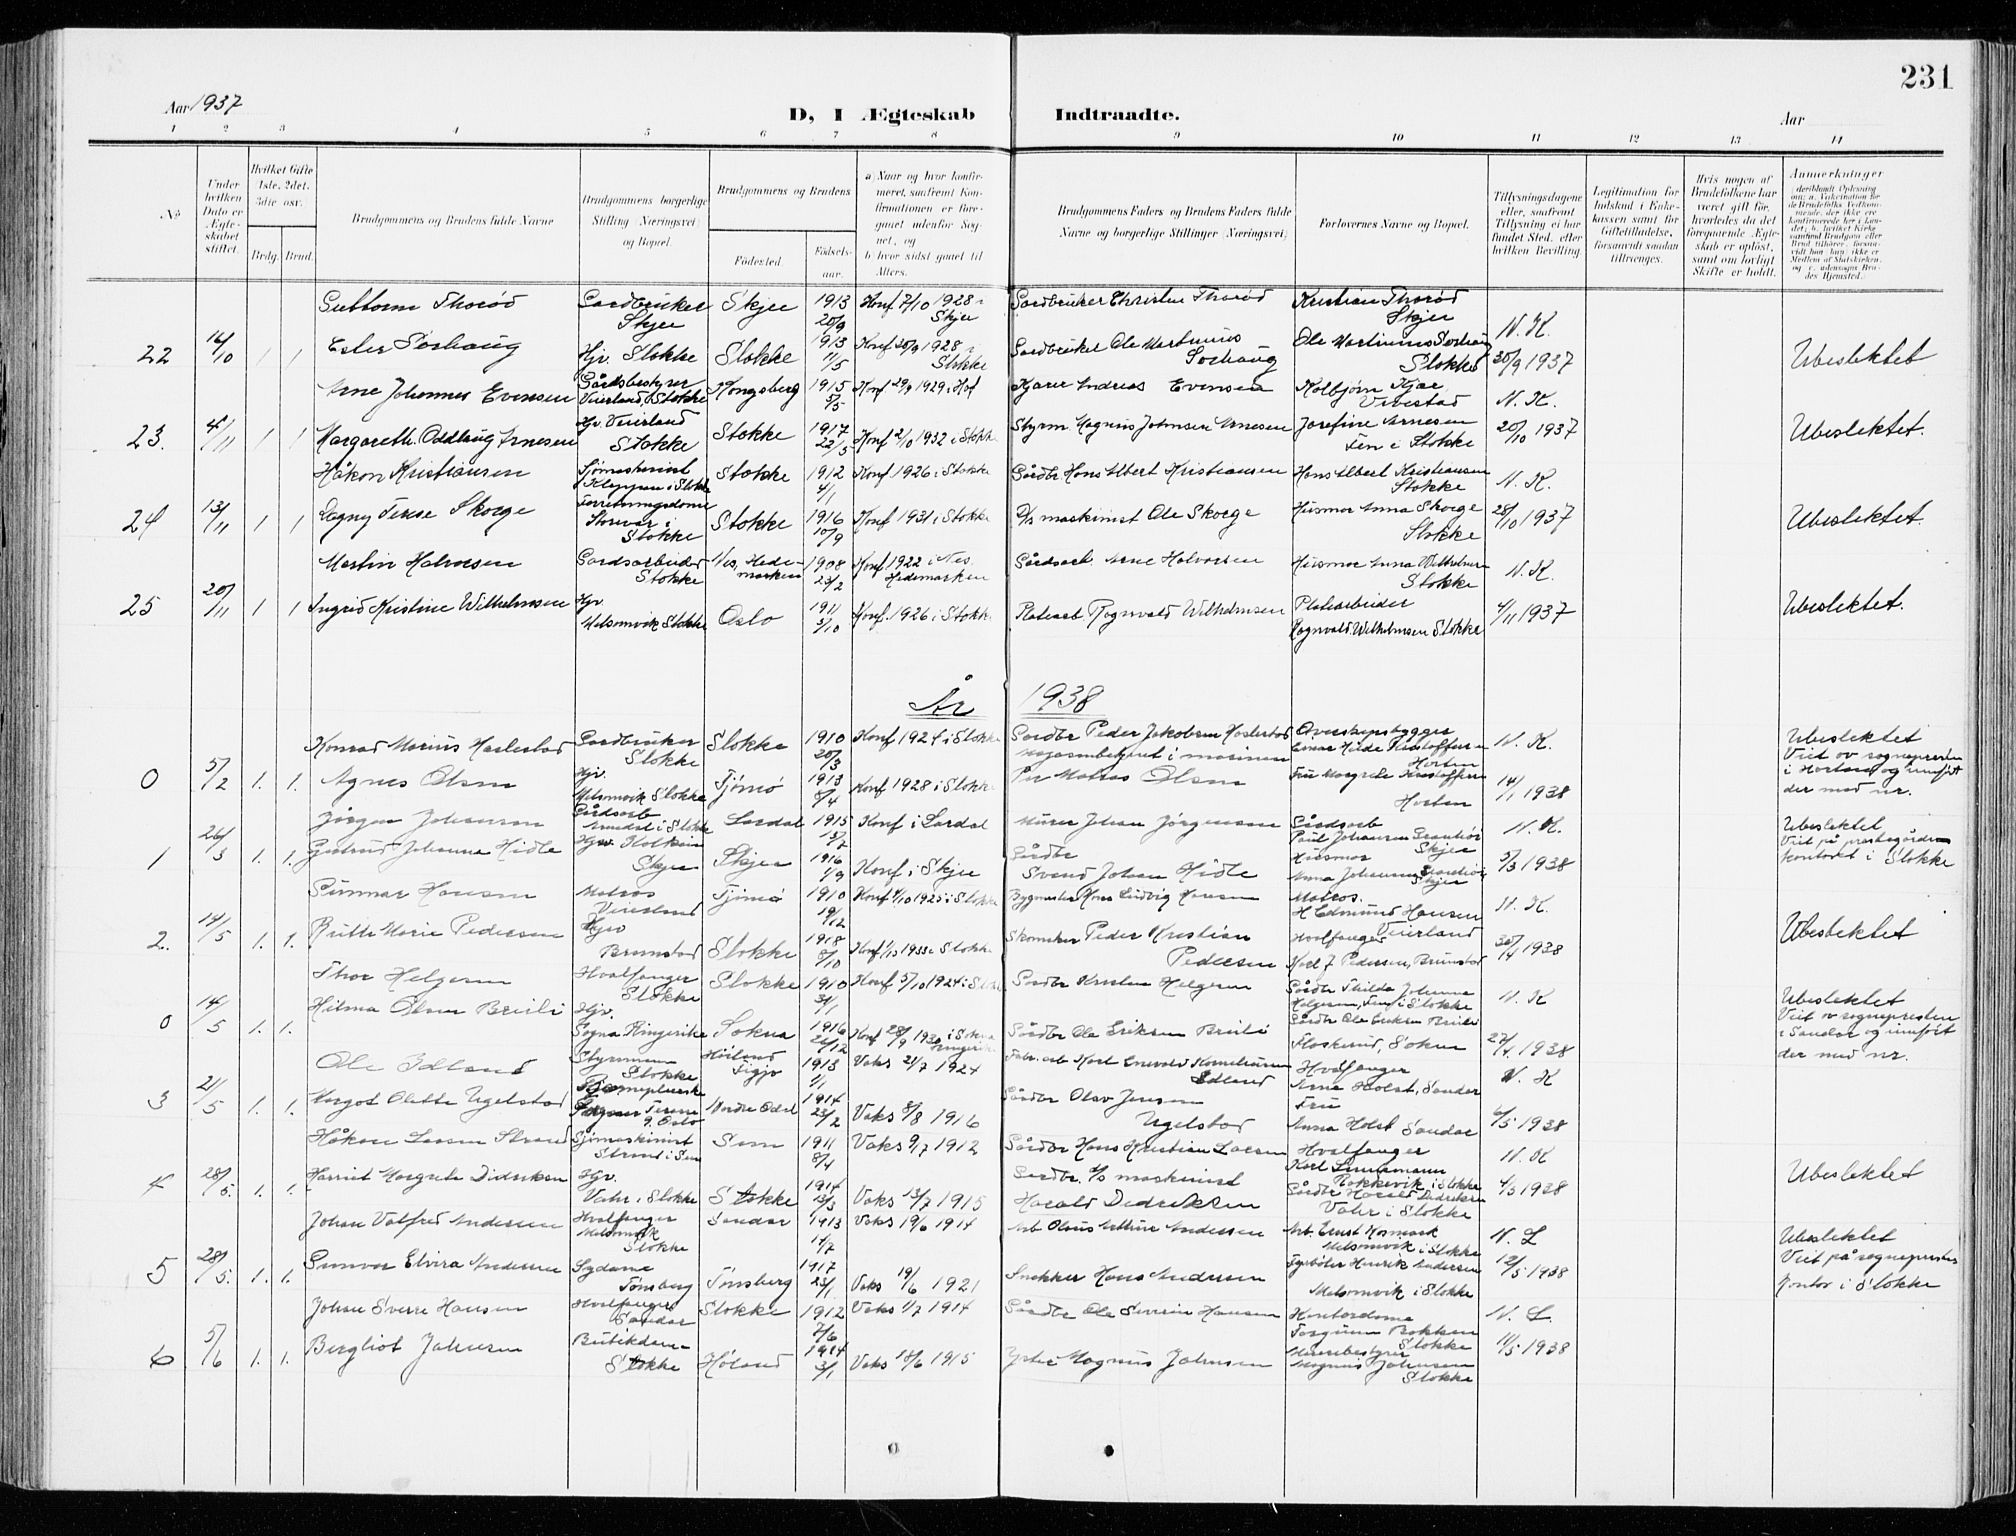 231
Aar 1937
D, I Ægteskab Indtraadte.
Aar
1 2 3 4 5 6 7 8 9 10 11 12 13 14
No
Under hvilken Dato er Ægteskabet stiftet.
Hvilket Gifte 1ste, 2det, 3die osv.
Brdg. Brud.
Brudgommens og Brudens fulde Navne
Brudgommens borgerlige Stilling (Næringsvei) og Bopæl.
Brudgommens og Brudens
Fødested.
Fødselsaar.
a) Naar og hvor konfirmeret, saafremt Konfirmationen er foregaaet udenfor Sognet, og
b) hvor sidst gaaet til Alters.
Brudgommens Faders og Brudens Faders fulde Navne og borgerlige Stillinger (Næringsvei)
Forlovernes Navne og Bopæl.
Tillysningsdagene eller, saafremt Tillysning ei har fundet Sted, efter hvilken Bevilling.
Legitimation for Indskud i Enkekassen samt for Giftetilladelse, forsaavidt saadan tiltrænges.
Hvis nogen af Brudefolkene har været gift før, hvorledes da det foregaaende Ægteskab er opløst, samt om lovligt Skifte er holdt.
Anmerkninger
Guttorm Thorød Gardbruker Skjee Skjee 1913 20/9 Konf 7/10 1928 i Skjee Gardbruker Christen Thorød Kristian Thorød Skjee N. K.
22 16/10 1 1 Ester Soshaug Hjv. Stokke Stokke 1913 11/5 Konf 30/9 1928 i Stokke Gardbruker Ole Martinius Soshaug Ole Martinius Soshaug Stokke 30/9 1937 Ubeslektet
Arne Johannes Evensen Gårdsbestyrer Veierland, Stokke Kongsberg 1915 5/5 Konf 29/9 1929 i Hof Andreas Evensen Kolbjørn Kjær Vivestad N. K.
23. 4/11 1 1 Margareth Oddlaug Arnesen Hjv. Veierland Stokke Stokke 1917 22/5 Konf 2/10 1932 i Stokke Styrm Magnus Johnsen Arnesen Josefine Arnesen Fen i Stokke 20/10 1937 Ubeslektet.
Håkon Kristiansen Sjömaskinist Kleppan i Stokke Stokke 1912 4/1 Konf 1926 i Stokke Gårdbr. Hans Albert Kristiansen Hans Albert Kristiansen Stokke N. K.
24 13/11 1 1 Dagny Terese Skorge Forretningsdame Storevar i Stokke Stokke 1916 10/9 Konf 1931 i Stokke maskinist Ole Skorge Husmor Anna Skorge Stokke 28/10 1937 Ubeslektet.
Martin Halvorsen Gardsarbeider Stokke Nes, Hedemarken 1908 23/2 Konf 1922 i Nes Hedemarken Gårdsarb Arne Halvorsen Husmor Anna Wilhelmsen Stokke N. K.
25 20/11 1 1 Ingrid Kristine Wilhelmsen Hjv. Melsomvik Stokke Oslo 1911 3/10 Konf. 1926 i Stokke Platearb Ragnvald Wilhelmsen Platearbeider Ragnvald Wilhelmsen Stokke 4/11 1937 Ubeslektet.
År 1938
Konrad Marius Haslestad Gardbruker Stokke Stokke 1910 20/3 Konf 1924 i Stokke Gardbr Peder Jakobsen Haslestad Horten N. K. Ubeslektet
0 5/2 1. 1. Agnes Olsen Hjv. Melsomvik Stokke Tjömö 1913 8/4 Konf 1928 i Stokke i marinen Olsen Fru Margrete Kristoffersen Horten 14/1 1938 Viet av sognepresten i Horten og innført der med nr.
Jörgen Johansen Gårdsarb i Stokke Lardal 1915 Konf i Lardal Murer Johan Jörgensen Gårdsarb Paul Johansen Skjee N. K. Ubeslektet
1 26/3 1. 1. Gjertrud Johanna Hidle Skjee Skjee 1916 1/9 Konf i Skjee Gårdbr Svend Johan Hidle Husmor Anna Johansen Skjee 5/3 1938 Viet på prestegårdens kontoret i Stokke
Gunnar Hansen Matros Veierland Tjömö 1910 19/12 Konf 4/10 1925 i Stokke Bygmester Hans Ludvig Hansen Matros. H Edmund Hansen Veierland N. K.
2. 14/5 1. 1. Ruth Marie Pedersen Hjv Brunstad Stokke 1918 8/10 Konf 1/10 1933 i Stokke Skomaker Peder Kristian Pedersen Hvalfanger Karl J Pedersen, Brunstad 30/4 1938 Ubeslektet
Thor Helgesen Hvalfanger Stokke Stokke 1910 31/1 Konf 5/10 1924 i Stokke Gardbr Kristen Helgesen Gårdbr Thilda Johanna Helgesen, Fen i Stokke N. K Ubeslektet
0 14/5 1. 1. Hilma Olsen Breili Hjv. Sogna Ringerike Sokna 1916 26/12 Konf 28/9 1930 i Sokna Ringerike Gårdbr Ole Eriksen Breili Gårdbr Ole Eriksen Breili Sokna 27/4 1938 Viet av sognepresten i Sandar og innført der med nr.
Ole Edland Styrmann Stokke Höiland 1913 1/1 Vaks 21/7 1924 Fabr. arb Karl Enevald Kornelius Edland Hvalfanger Arne Holst, Sandar N. K
3 21/5 1. 1. Margot Olette Ugelstad Nordre Odal 1914 23/2 Vaks 8/8 1916 Gårdbr Olav Jensen Ugelstad Fru Anna Holst Sandar 6/5 1938
Håkon Larsen Strand Sjömaskinist Strand i Sem Sem 1911 8/4 Vaks 9/7 1912 Gårdbr Hans Kristian Larsen Hvalfanger Karl Rakkevik i Stokke N. K
4 28/5. 1. 1. Harriet Margrete Didriksen Hjv. Vahr i Stokke Stokke 1914 13/3 Vaks 13/7 1915 Gardbr. maskinist Harald Didriksen Gårdbr Harald Didriksen Vahr i Stokke 4/5 1938 Ubeslektet
Johan Valfred Andersen Hvalfanger Melsomvik Stokke Sandar 1913 11/7 Vaks 19/6 1914 Arb Olaus Andersen Arb. Ernst Melsomvik i Stokke N. L Ubeslektet
5 28/5. 1. 1. Gunvor Elvira Andersen Sydame Tönsberg Tönsberg 1917 23/1 Vaks 19/6 1921 Snekker Hans Andersen Fyrböter Henrik Andersen Melsomvik i Stokke 12/5 1938 Viet på sogneprestens kontor i Stokke
Johan Sverre Hansen Hvalfanger Sandar Stokke 1912 7/6 Vaks 1/7 1914 Gårdbr Ole Severin Hansen Kontordame Torgunn Bakken Stokke N. L.
6 5/6 1. 1. Bergliot Johnsen Butikdame Stokke Höland 1914 3/1 Vaks 18/6 1915 Magnus Johnsen Meieribestyrer Magnus Johnsen Stokke 11/5 1938